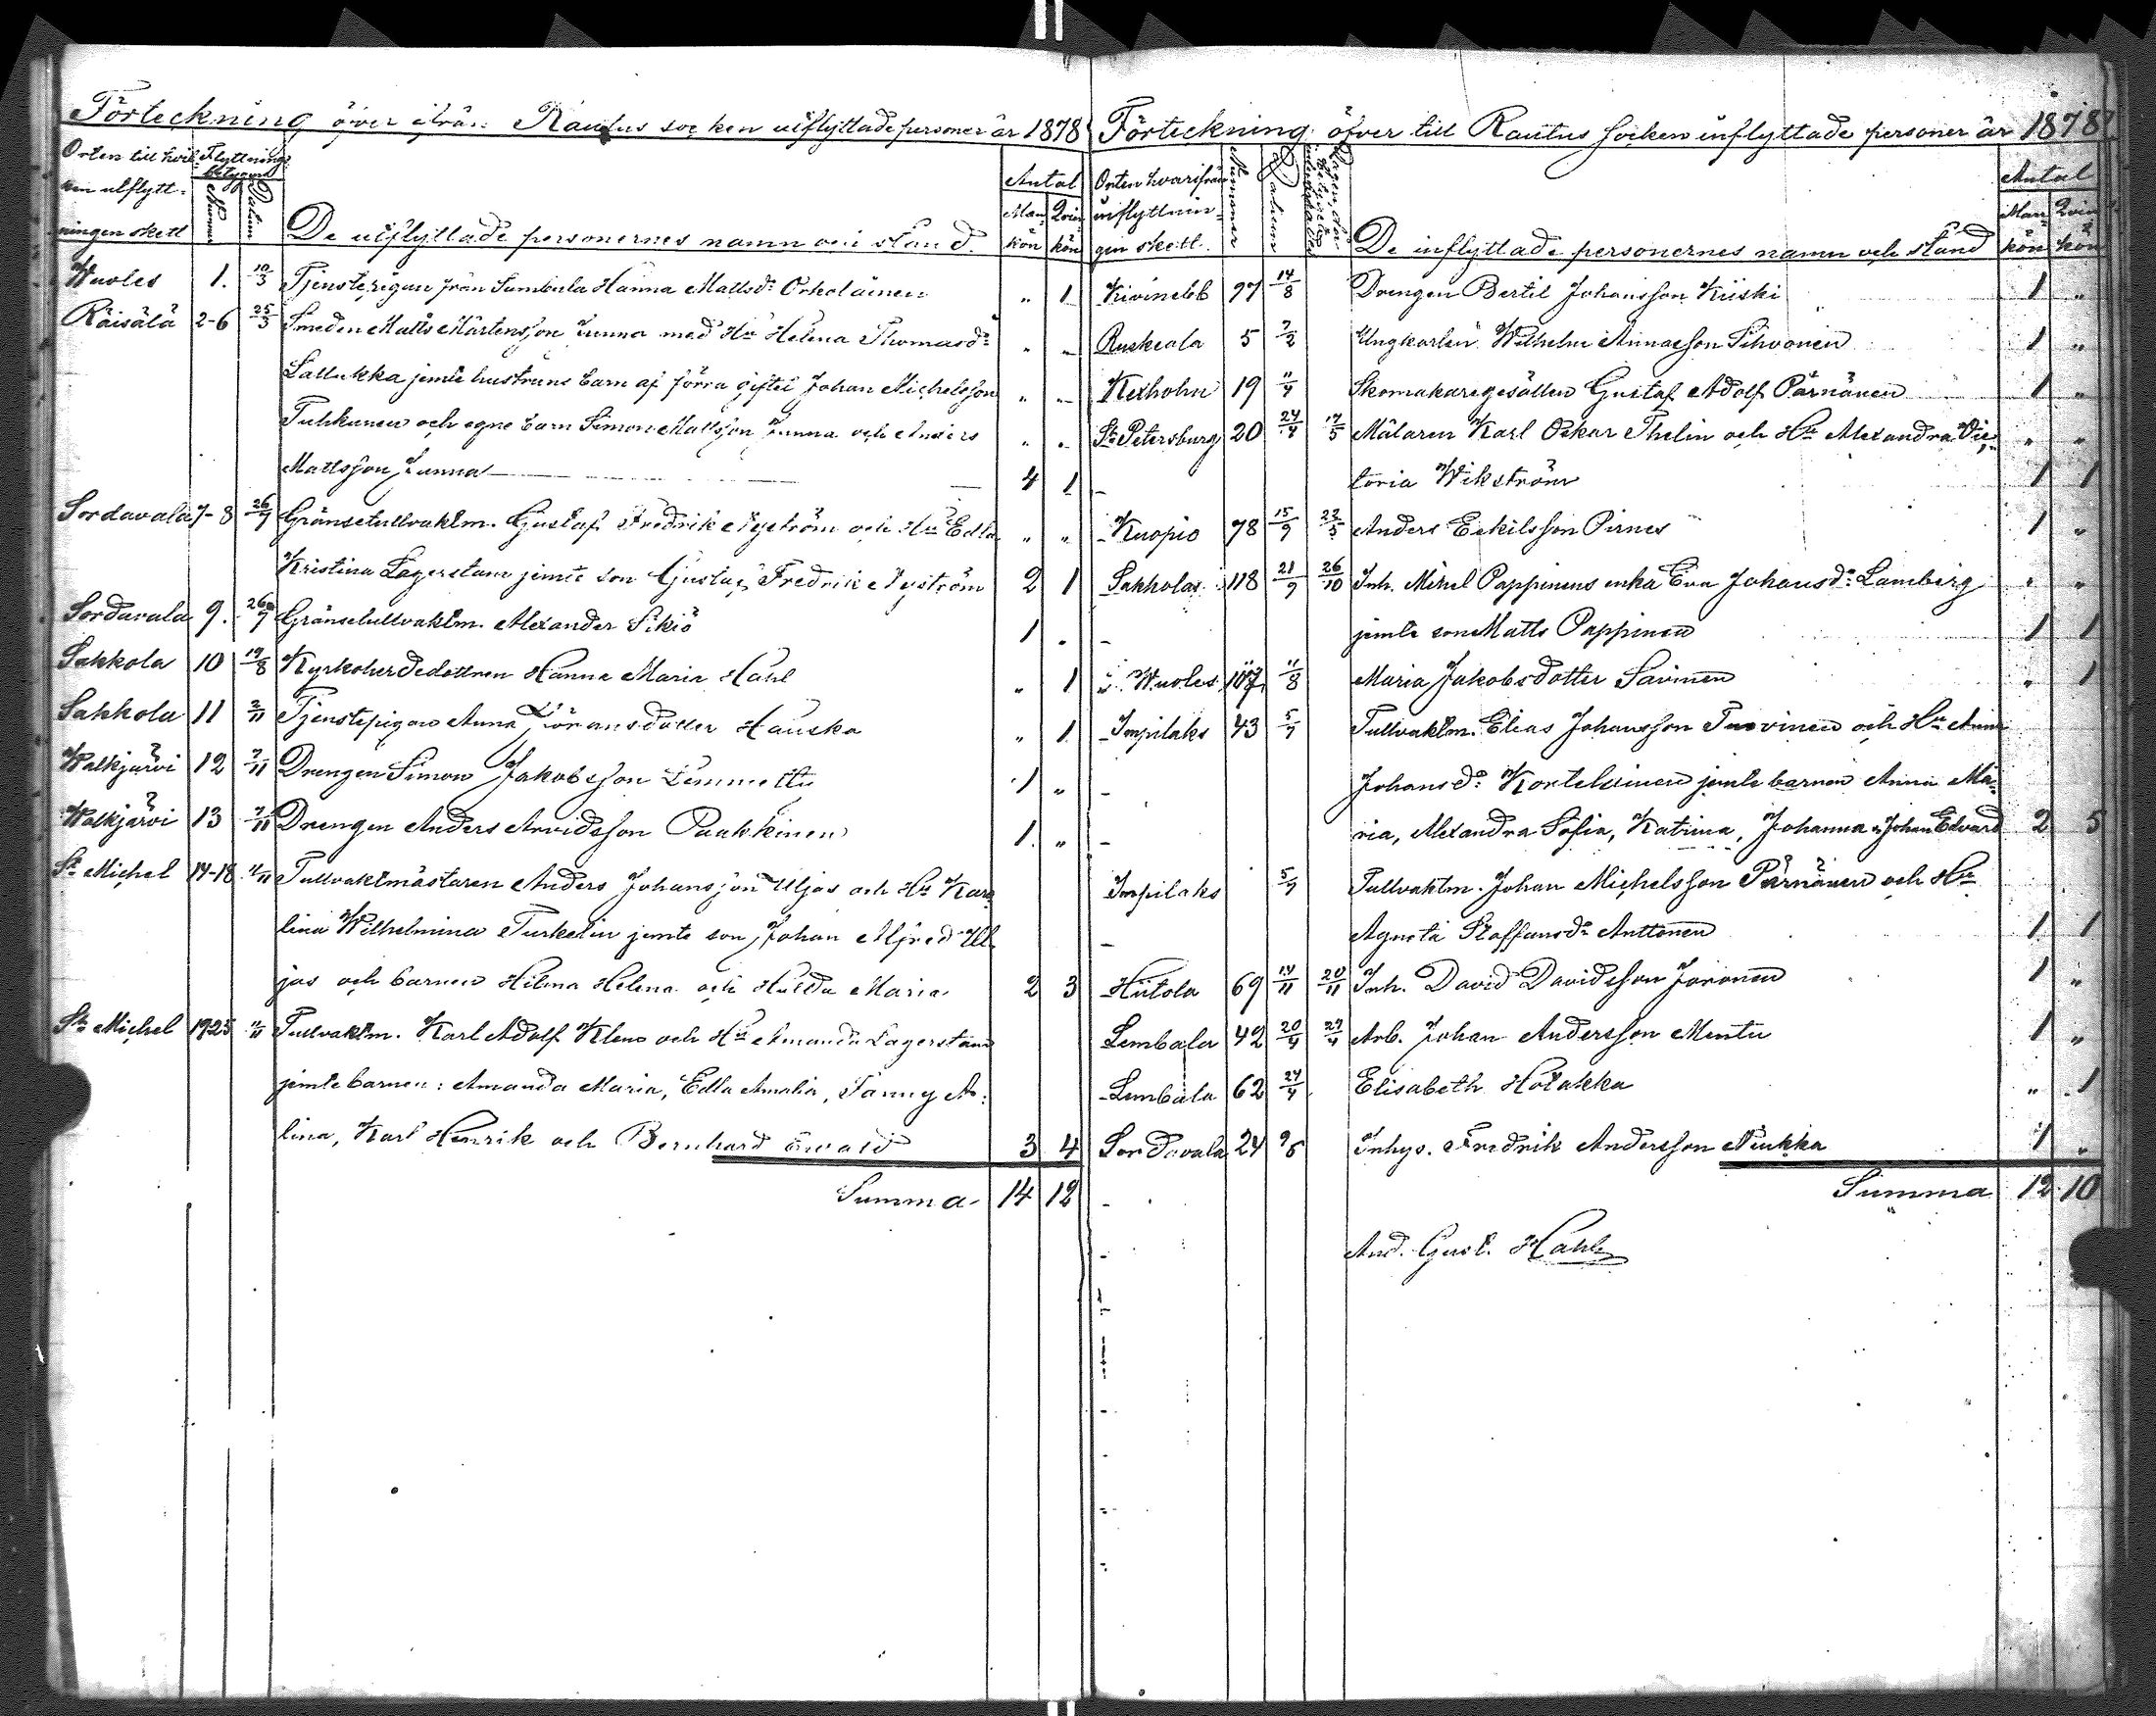 Förteckning öfver ifrån Rautus socken utflyttade personer år 1878
Orten till hvil- Flyttnings
betygens
ken utflytt- Antal
Nummer Datum Man Qvin
ningen skett De utflyttade personernes namn och stånd. kön kön
Wuoles 1. 10/3 Tjenstepigan från Sumbula Hanna Mattsdr Orholainen „ 1
Räisälä 2-6 25/3 Smeden Matts Mårtensson Junna med Hu Helena Thomasdr „ „
Lallukka jemte hustruns barn af förra giftet Johan Michelsson „ „
Tuhkunen och egne barn Simon Mattsson Junna och Anders „ „
Mattsson Junna 4 1
Sordavala 7-8 26/7 Gränsetullvaktm. Gustaf Fredrik Nyström och Hu Edla „ „
Kristina Lagerstam jemte son Gustaf Fredrik Nyström 2 1
Sordavala 9. 26/7 Gränsetullvaktm. Alexander Sikiö 1 „
Sakkola 10 19/8 Kyrkoherdedottren Hanna Maria Hahl „ 1
Sakkola 11 2/11 Tjenstepigan Anna Göransdotter Hauska „ 1
Walkjärvi 12 2/11 Drengen Simon Jakobsson Lemmetty 1 „
Walkjärvi 13 2/11 Drengen Anders Arvidsson Paakkinen 1. „
St Michel 14-18 11/11 Tullvaktmästaren Anders Johansson Uljas och Hu Karo-
lina Wilhelmina Turkelin jemte son Johan Alfred Ul-
jas och barnen Hilma Helena och Hulda Maria 2 3
St Michel 19-25 11/11 Tullvaktm. Karl Adolf Klens och Hu Amanda Lagerstam
jemte barnen: Amanda Maria, Edla Amalia, Fanny A-
lina, Karl Henrik och Bernhard Osvald 3 4
Summa 14 12
Förteckning öfver till Rautus socken inflyttade personer år 1878
Orten hvarifrån Nummer Datum Antal
inflyttnin- Man Qvin
gen skett. De inflyttade personernes namn och stånd kön kön
Kivinebb 97 14/8 Drengen Bertil Johansson Kiiski 1 „
Ruskeala 5 7/2 Ungkarlen Wilhelm Annasson Sihvonen 1 „
Kexholm 19 11/4 Skomakaregesällen Gustaf Adolf Pärnänen 1 „
St Petersburg 20 24/4 17/5 Målaren Karl Oskar Thelin och Hu Alexandra Vic- „ „
toria Wikström 1 1
Kuopio 78 15/9 23/5 Anders Eskilsson Pirnes 1 „
Sakkola 118 21/9 26/10 Inh. Mihel Pappinens enka Eva Johansdr Lamberg „ „
jemte son Matts Pappinen 1 1
Wuoles 107 11/8 Maria Jakobsdotter Savinen „ 1
Impilaks 43 5/7 Tullvaktm. Elias Johansson Turvinen och Hu Anna
Johansdr Kortelainen jemte barnen Anna Ma-
ria, Alexandra Sofia, Katrina, Johanna o Johan Edvard 2 5
Impilaks 5/7 Tullvaktm. Johan Michelsson Pärnänen och Hu
Agneta Staffansdr Anttonen 1 1
Hiitola 69 14/11 20/11 Inh. David Davidsson Joronen 1 „
Lembala 42 20/4 29/4 Arb. Johan Andersson Mentu 1 „
Lembala 62 24/4 Elisabeth Hotakka „ 1
Sordavala 24 9/6 Inhys. Fredrik Andersson Neukka 1 „
Summa 12 10
And. Gust. Hahl